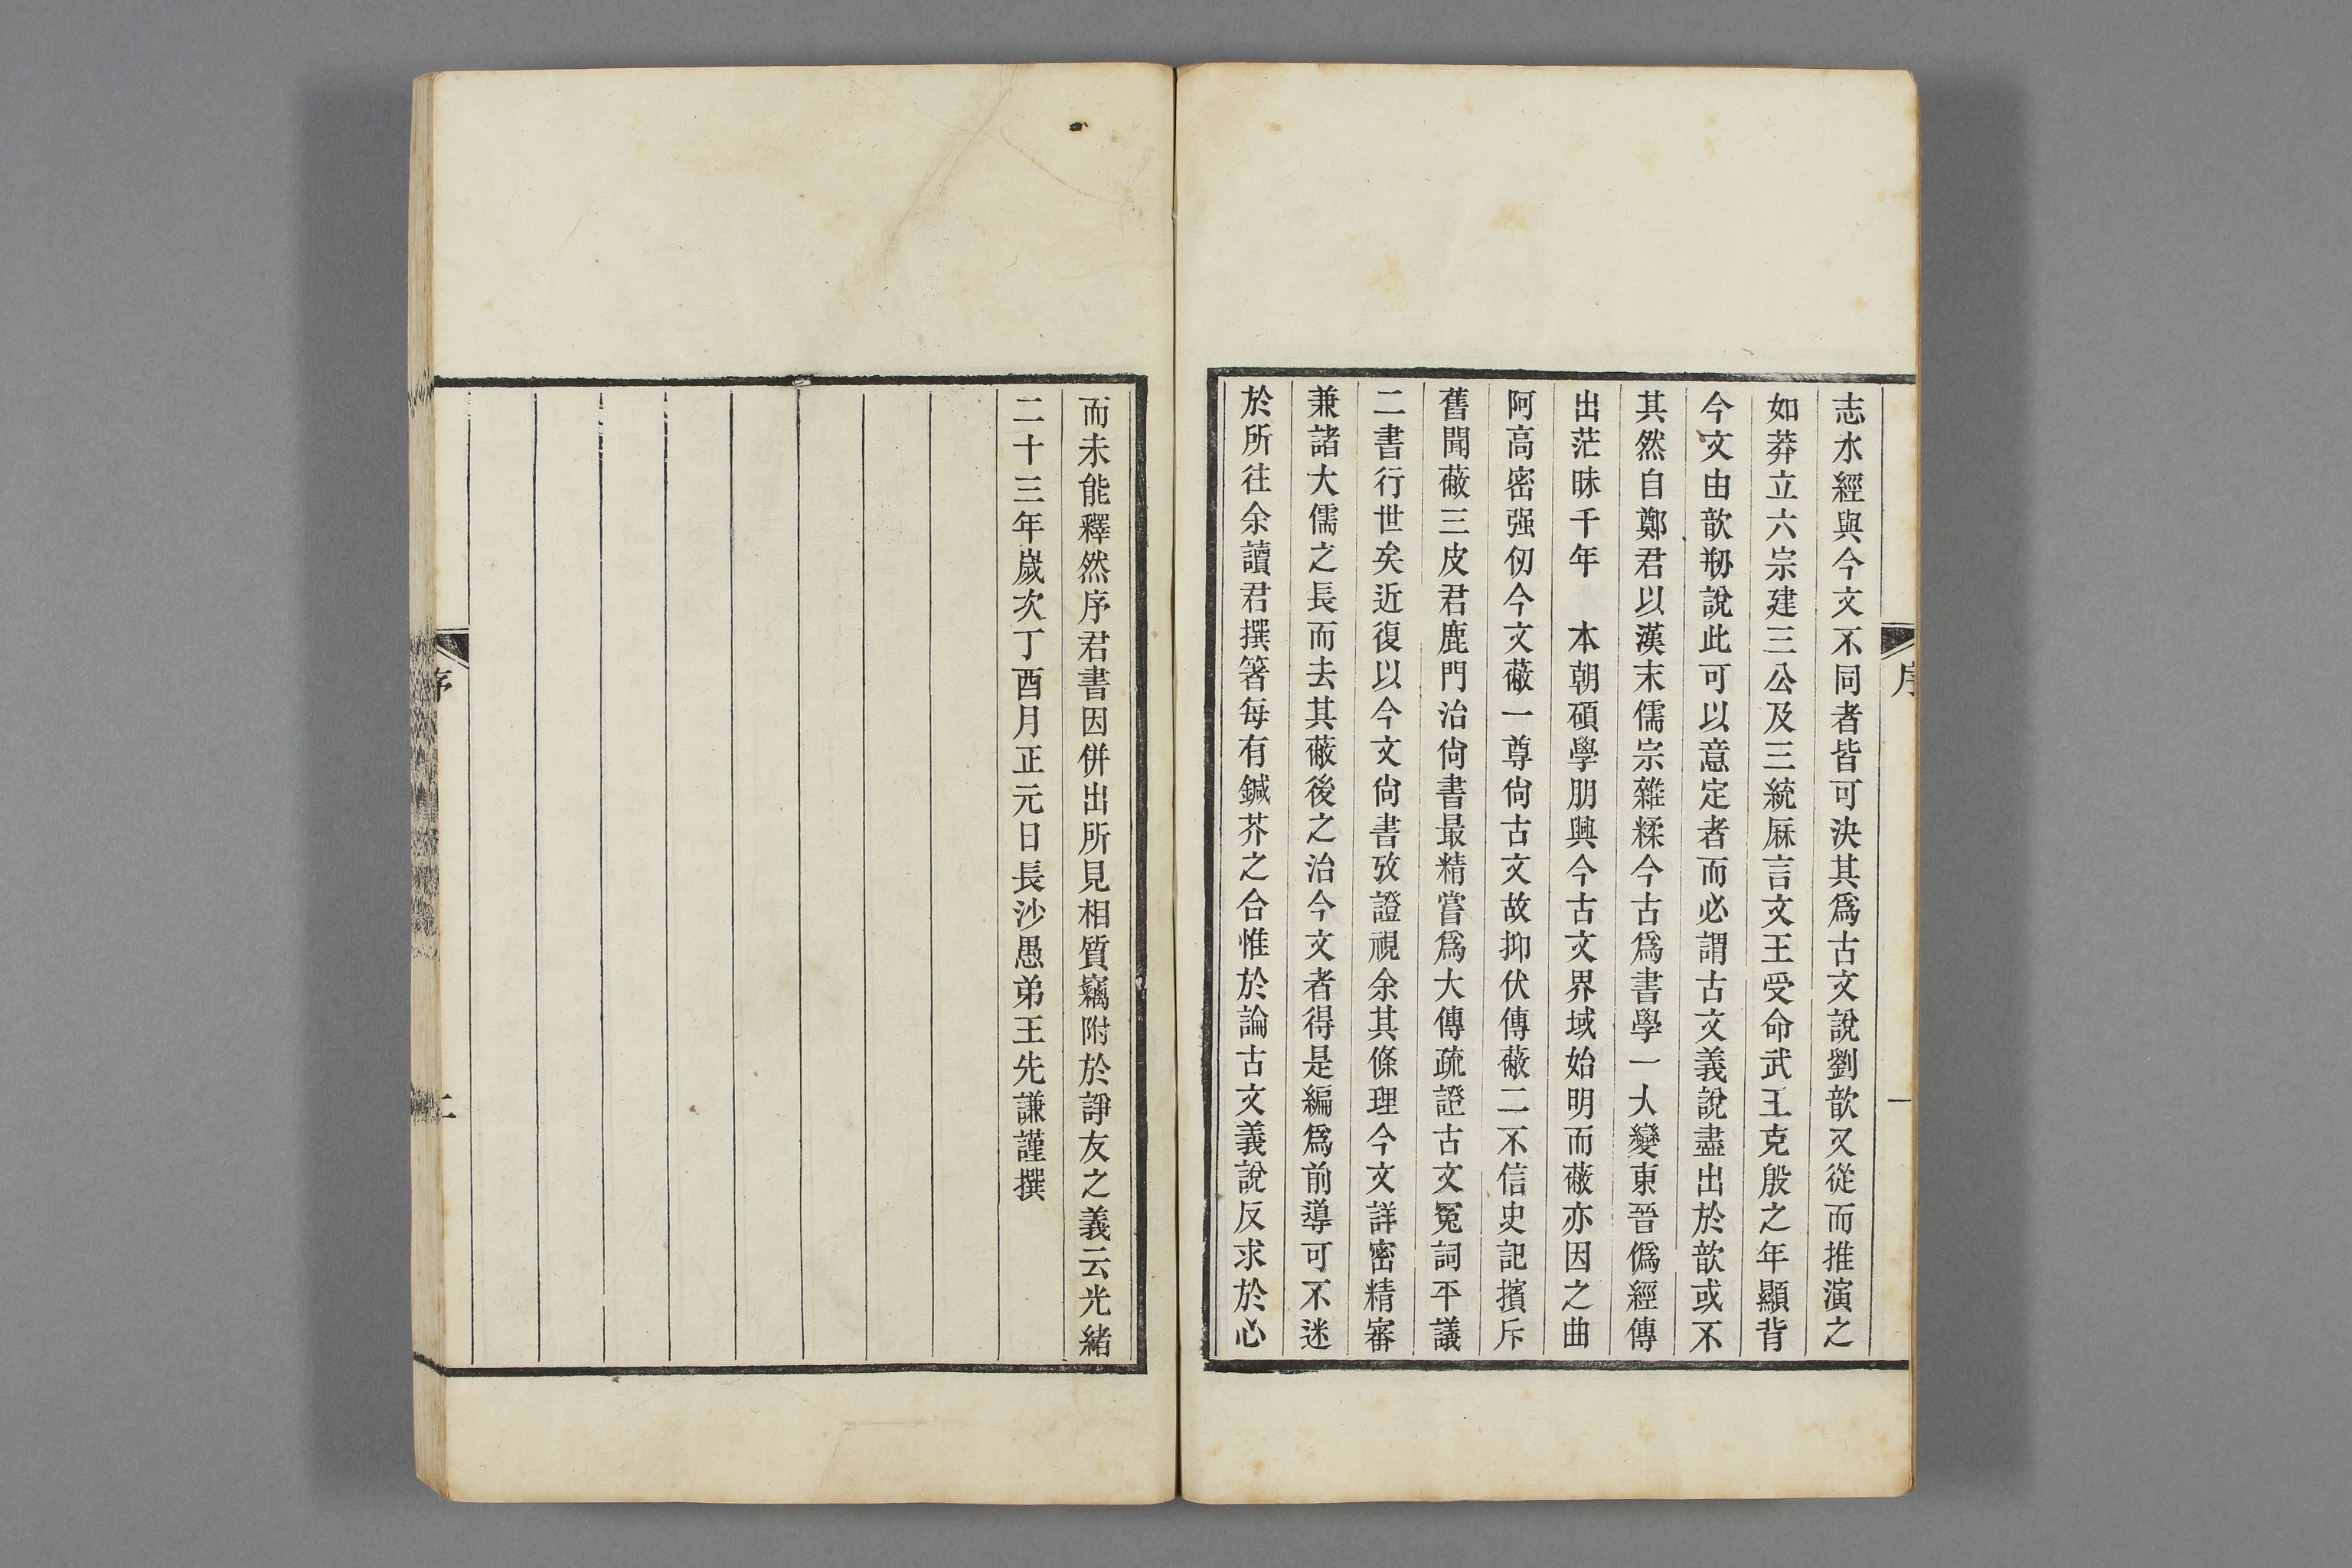 志水經與今文不同者皆可決其爲古文說劉歆又從而推演之
如莽立六宗建三公及三統厤言文王受命武王克殷之年顯背
今文由歆剙說此可以意定者而必謂古文義說盡出於歆或不
其然自鄭君以漢末儒宗雜糅今古爲書學一大變東晉僞經傳
出茫昧千年　本朝碩學朋興今古文界域始明而蔽亦因之曲
阿高密强仞今文蔽一尊尙古文故抑伏傳蔽二不信史記擯斥
舊聞蔽三皮君鹿門治尙書最精嘗爲大傳疏證古文冤詞平議
二書行世矣近復以今文尙書攷證視余其條理今文詳密精審
兼諸大儒之長而去其蔽後之治今文者得是編爲前導可不迷
於所往余讀君撰箸每有鍼芥之合惟於論古文義說反求於心
序
一
而未能釋然序君書因併出所見相質竊附於諍友之義云光緒
二十三年歲次丁酉月正元日長沙愚弟王先謙謹撰
序
二